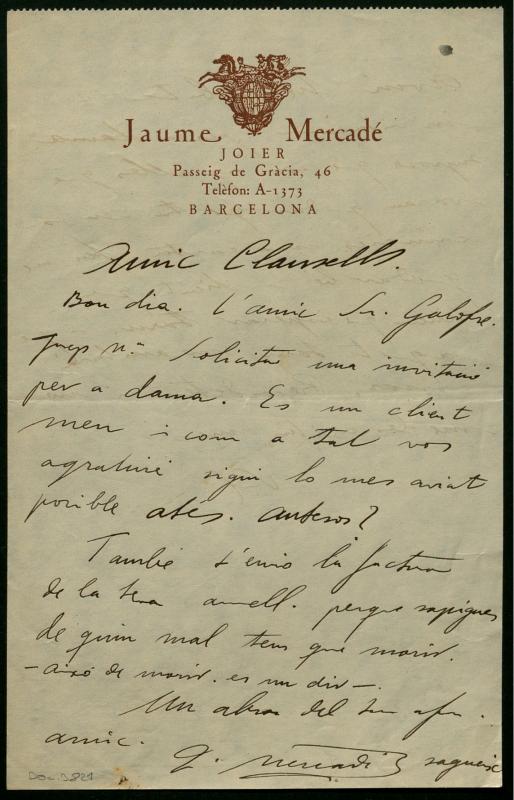 Jaume Mercadé
JOIER
Passeig de Gràcia, 46
Telèfon: A-1373
BARCELONA
Amic Clausells.
Bon dia. L'amic Sr. Galofre.
Solicita una invitació
per a dama. Es un client
meu i com a tal vos
agrairé sigui lo mes aviat
posible atés. entesos?
També t'envio la factura
de la teva anell. perque sapigues
de quin mal tens que morir.
- aixó de morir. es un dir -.
Un abraç del teu afm.
amic.
J. Mercadé
Doc. 3821